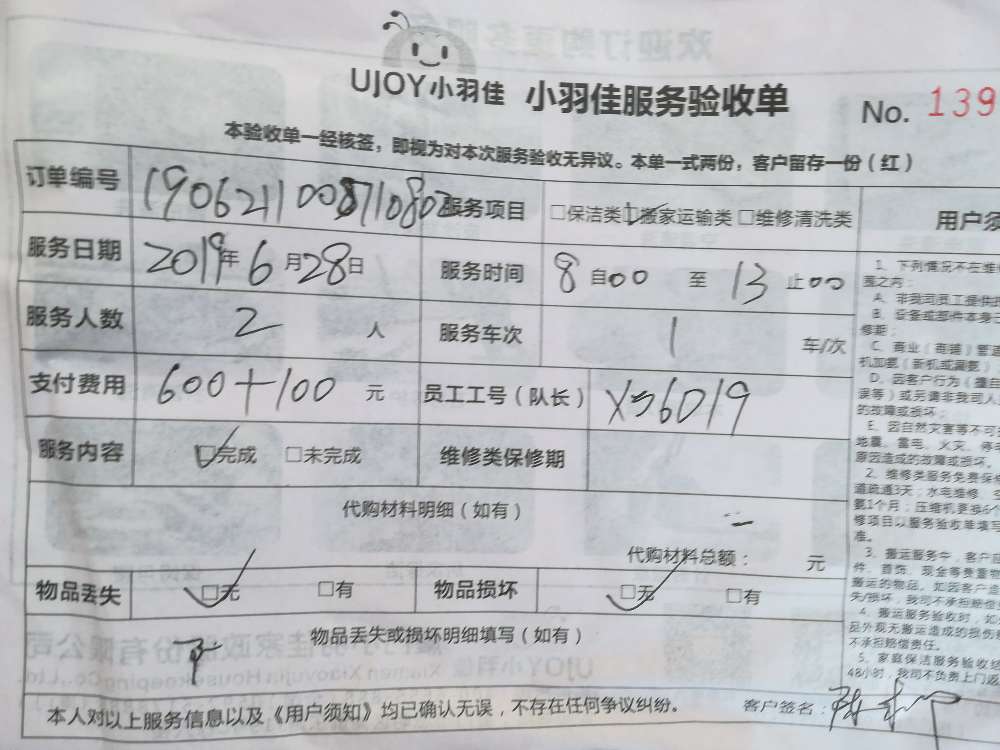 UJOY小羽佳 小羽佳服务验收单 No. 139
本验收单一经核签，即视为对本次服务验收无异议。本单一式两份，客户留存一份（红）
订单编号 服务项目 □保洁类 □搬家运输类 □维修清洗类
服务日期 2019年6月28日 服务时间 8自00 至 13止00
服务人数 2 人 服务车次 1 车/次
支付费用 600+100 元 员工工号（队长） X36019
服务内容 □完成 □未完成 维修类保修期
代购材料明细（如有）
代购材料总额： 元
物品丢失 □无 □有 物品损坏 □无 □有
物品丢失或损坏明细填写（如有）
本人对以上服务信息以及《用户须知》均已确认无误，不存在任何争议纠纷。 客户签名：
用户须
1、下列情况不在维
围之内：
A、非我司员工提供
B、设备或部件本身
修期；
C、商业（商铺）管道
机加氨（新机或漏氨）
D、因客户行为（擅自
误等）或另请非我司人
的故障或损坏；
E、因自然灾害等不可
地震、雷电、火灾、停
原因造成的故障或损坏。
2、维修类服务免费保
道疏通3天；水电维修、
氨1个月；压缩机更换6个
修项目以服务验收单填写
准。
3、搬运服务中，客户应
件、首饰、现金等贵重物
搬运的物品。如因客户
失/损坏，我司不承担赔偿
4、搬运服务验收时，如
品外观无搬运造成的损伤
不承担赔偿责任。
5、家庭保洁服务验收
48小时，我司不负责上门返